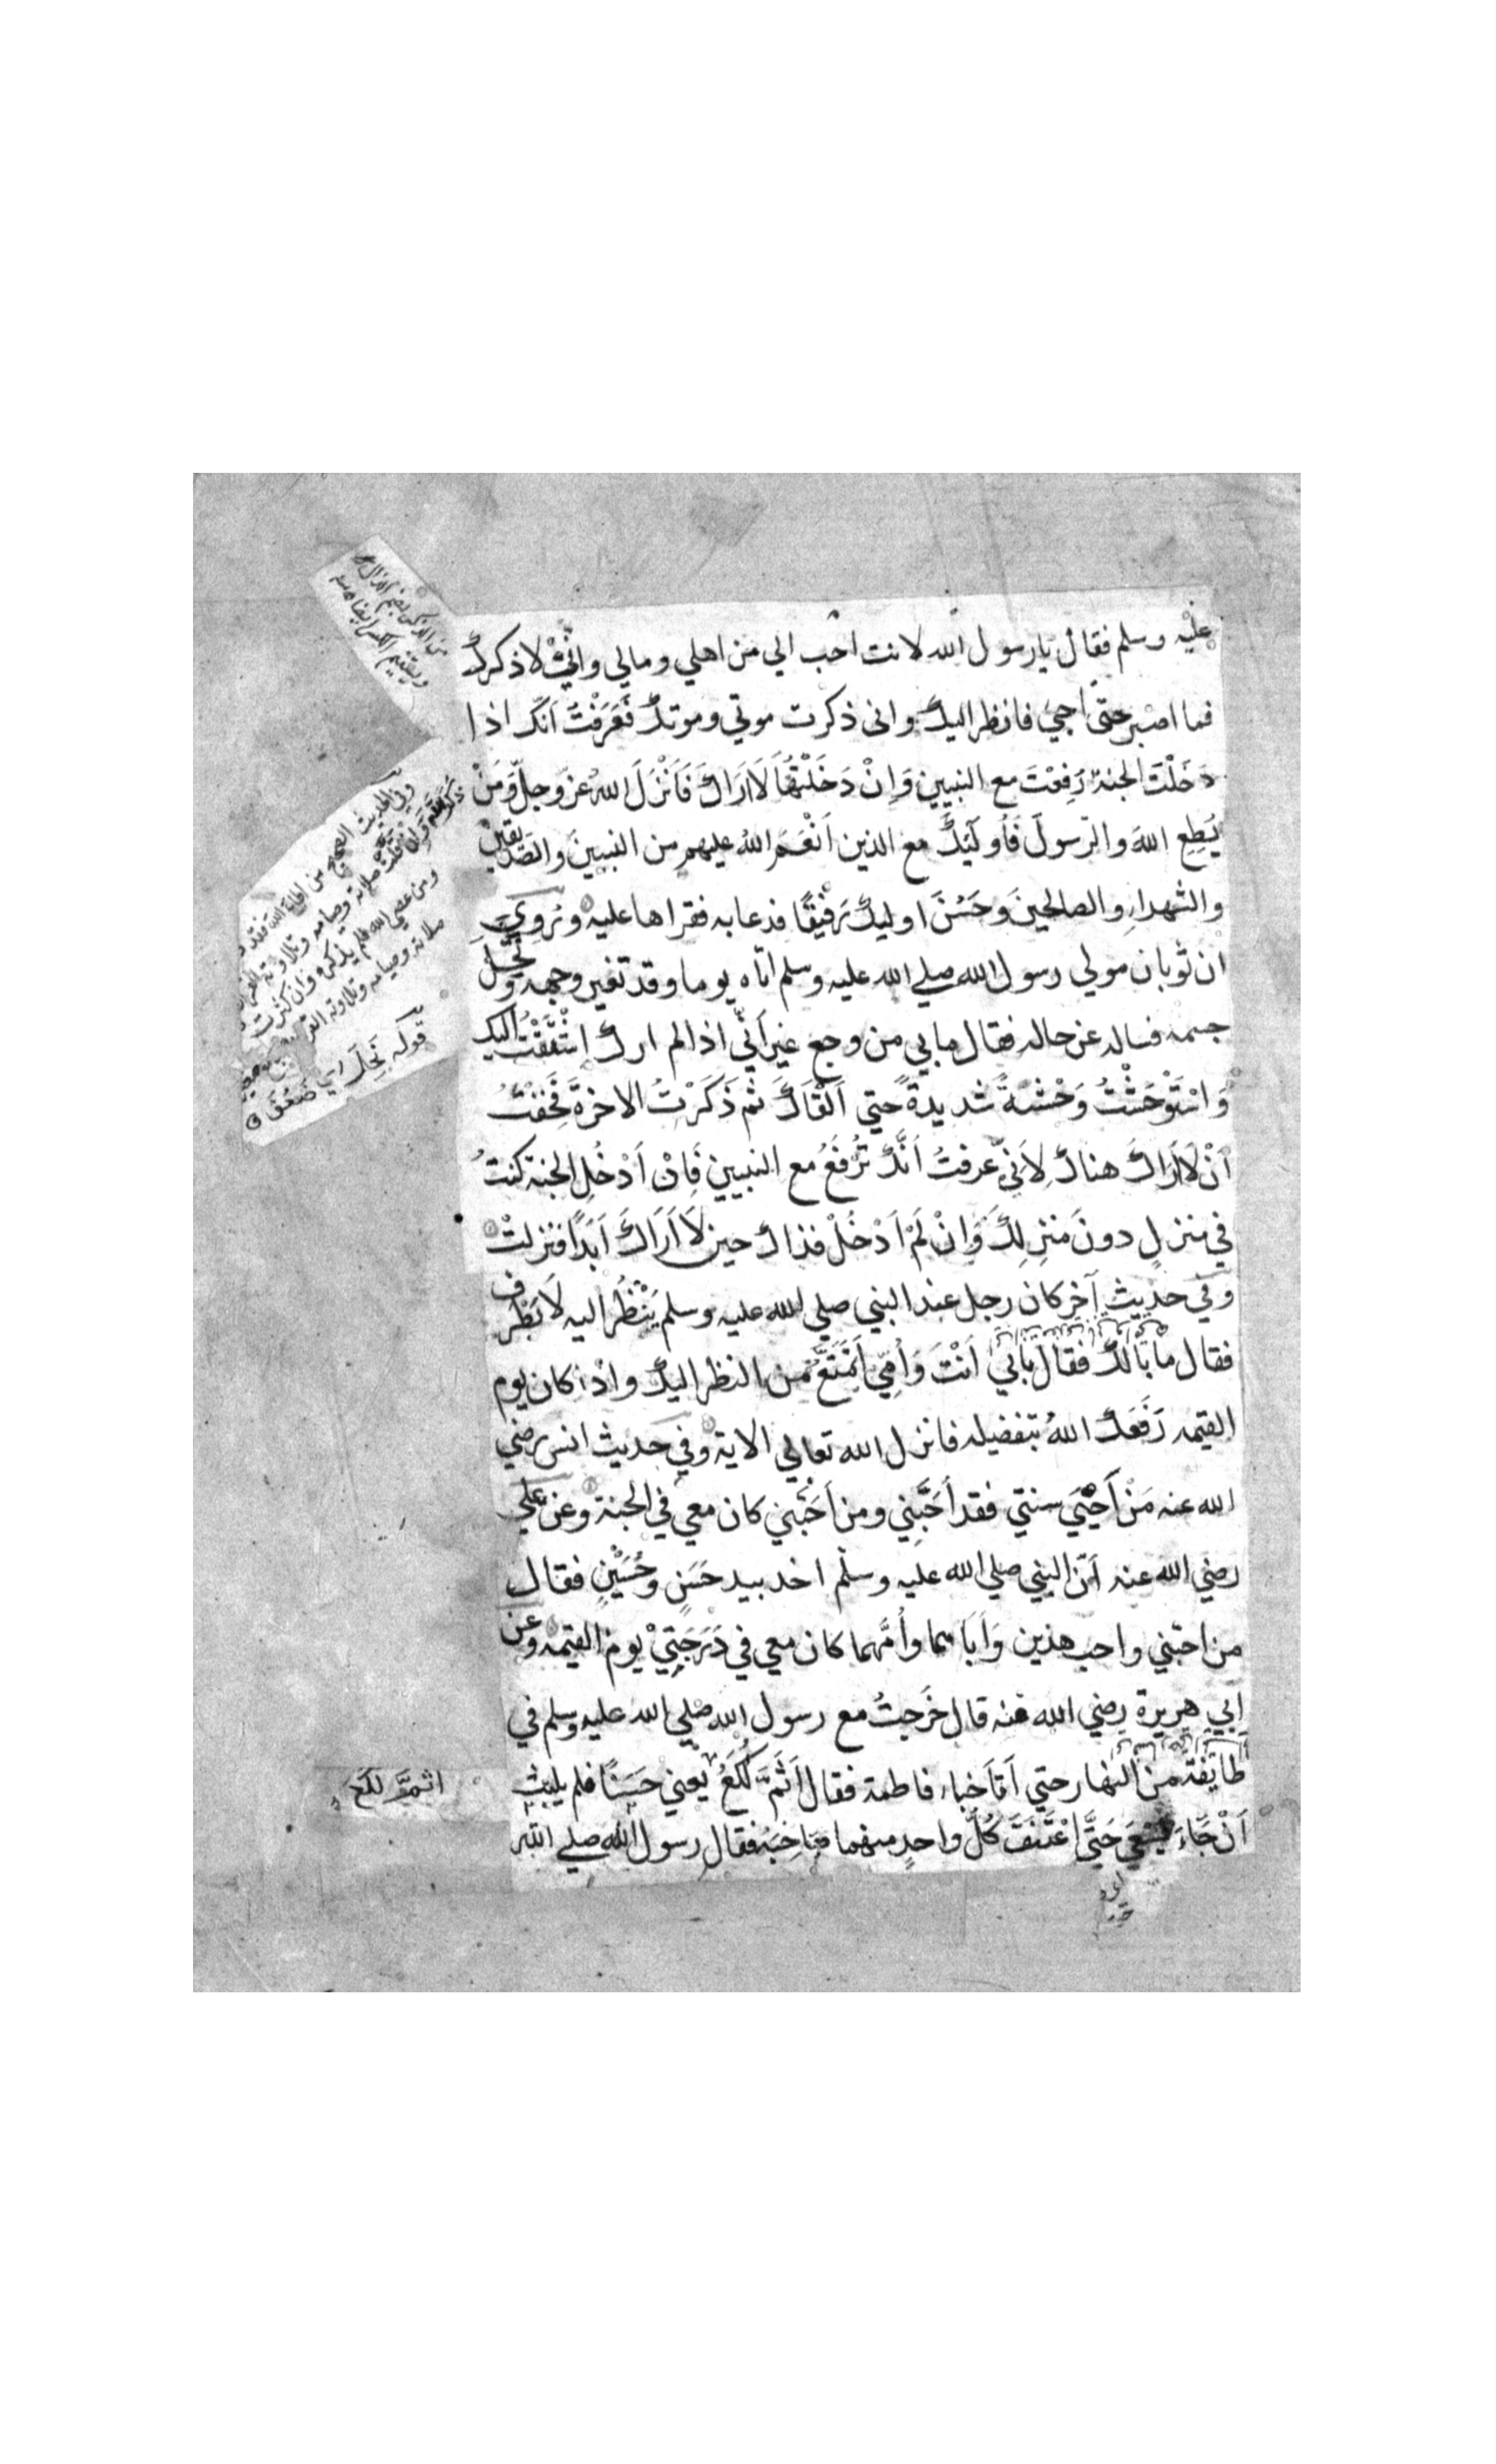 عليه وسلم فقال يا رسول الله لانت احب الي من اهلي ومالي وانّي لاذكرك
فما اصبر حتى اجي فانظر اليك وانى ذكرت موتي وموتك فَعَرَفْتُ اَنّك اذا
دَخَلْتَ الجنةَ رُفِعْتَ مع النبيين وَاِنْ دَخَلْتُهَا لَا اَرَاكَ فَاَنْزَلَ اللهُ عزّ وجلّ وَمَنْ
يُطِعِ اللهَ والرّسولَ فَاُولَئِكَ مع الذين اَنْعَمَ اللهُ عليهم من النبيينَ والصّدّيقينَ
والشهداءِ والصالحينَ وحَسُنَ اوليكَ رَفيْقًا فدعا به فقراها عليه ويُروي
ان ثوبان مولى رسول الله صلي الله عليه وسلم اتاه يوما وقد تغير وجهه ونَحَلَ
جسمه فساله عن حاله فقال ما بي من وجع غير اَنّي اذا لم ارك اشْتَقْتُ اليك
وَاسْتَوْحَشْتُ وَحْشَةً شديدةً حتي اَلْقَاكَ ثم ذَكَرْتُ الاخرةَ فَخِفْتُ
اَنْ لَا اَرَاكَ هناك لِاَنّي عرفتُ اَنَّكَ تُرْفَعُ مع النبيين فَاِنْ اَدْخُلِ الجنة كنتُ
في منزلٍ دونَ منزِلِكَ وَاِنْ لَمْ اَدْخُلْ فذاك حين لَا اَرَاكَ اَبَدًا فنزلتْ
وفي حديثٍ آخر كان رجل عند النبي صلي الله عليه وسلم يَنْظُرُ اليه لَا يَطْرِف
فقال ما بَالُكَ فقال بابي اَنْتَ وَاُمِّي اَتَمَتَّعُ من النظر اليك واذا كان يوم
القيمه رَفَعَكَ اللهُ بتفضيله فانزل الله تعالي الاية وفي حديث انس رضي
الله عنه مَنْ اَحْيَي سنتي فقد اَحَبَّنِي ومن اَحَبَّني كان معي في الجنة وعن علي
رضي الله عنه اَنّ النبي صلي الله عليه وسلم اخد بيد حَسَنٍ وحُسَيْنٍ فقال
من احبّني واحب هذين وَاَبَاهما واُمَّهما كان معي في دَرَجَتِيْ يوم القيمه وعن
ابي هريرة رضي الله عنه قال خَرَجتُ مع رسول الله صلي الله عليه وسلم في
طايِفةٍ من النهار حتي اَتَا خباء فاطمة فقال اَثَمَّ لُكَعُ يعني حَسَنًا فلم يلبث
اَنْ جَاءَ يَسْعَى حَتَّى اعْتَنَقَ كُلُّ واحدٍ منهما صَاحِبَهُ فقال رسول الله صلي الله
وفي الحديث الصحيح من اطاع الله فقد
ذكر الله وان قلّت صلاته وصيامه وتلاوته
ومن عصى الله فلم يذكره وان كثرت
صلاته وصيامه وتلاوته
قوله نَحَلَ اي ضَعُفَ
اثمّ لكع